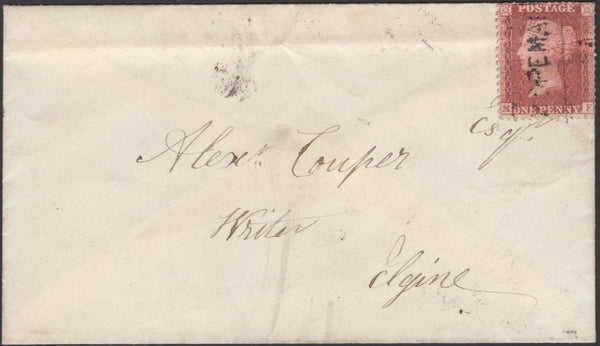 POSTAGE
PEMA
M ONE PENNY F
Esqr.
Alexr. Couper
Writer
Elgine